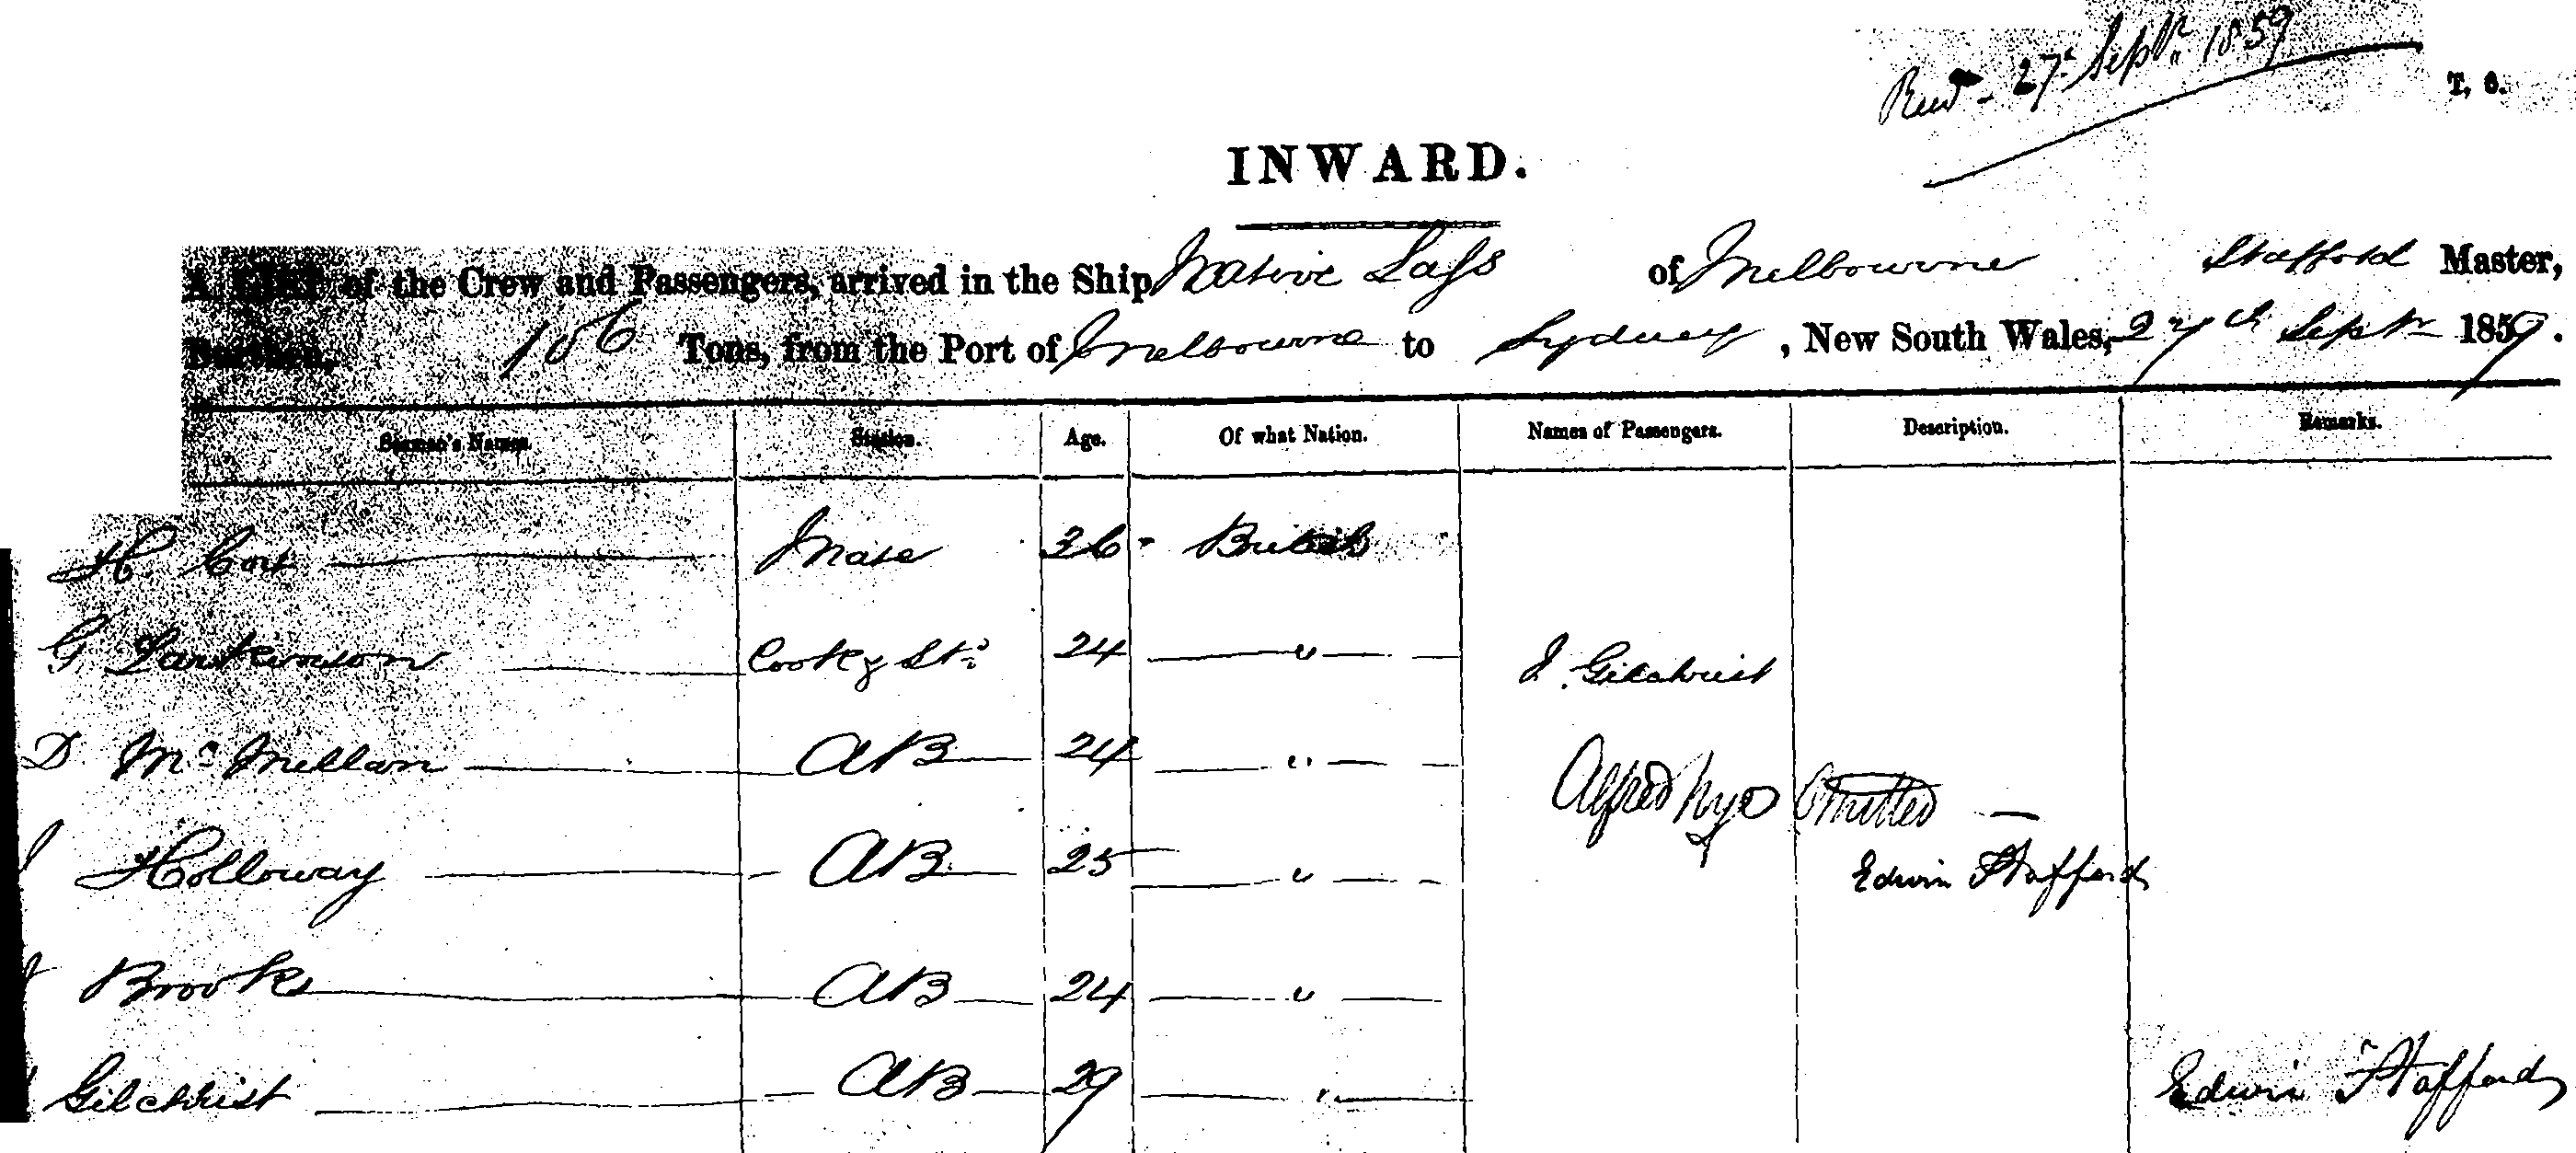 Recd - 27 Septr. 1859
T, S.
INWARD.
A LIST of the Crew and Passengers, arrived in the Ship Native Lass of Melbourne Stafford Master,
Burthen, 106 Tons, from the Port of Melbourne to Sydney, New South Wales, 27th Septr 1859.
Seamen's Names. Station. Age. Of what Nation. Names of Passengers. Description. Remarks.
H. Cox Mate 36 British
G. Cook & Std 24 "
J. Gilchrist
D McMillan AB 24 "
Alfred Nye Omitted
Holloway AB 25 "
Edwin Stafford
Brooks AB 24 "
Gilchrist AB 29 "
Edwin Stafford